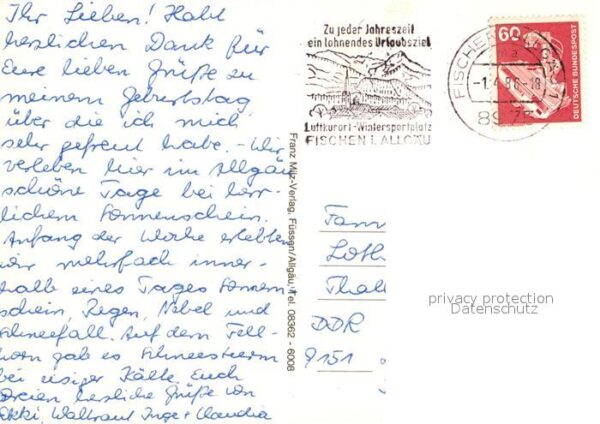 Ihr Lieben! Habt
herzlichen Dank für
Eure lieben Grüße zu
meinem Geburtstag,
über die ich mich
sehr gefreut habe. - Wir
verleben hier im Allgäu
schöne Tage bei herr-
lichem Sonnenschein.
Anfang der Woche erlebten
wir mehrfach inner-
halb eines Tages Sonnen-
schein, Regen, Nebel und
Schneefall. Auf dem Fell-
horn gab es Schneesturm
bei eisiger Kälte. Euch
Dreien herzliche Grüße von
Ekki, Waltraut Inge + Claudia
Franz Milz-Verlag, Füssen/Allgäu, Tel. 08362 - 6008
Zu jeder Jahreszeit
ein lohnendes Urlaubsziel
Luftkurort-Wintersportplatz
FISCHEN i. ALLGÄU
FISCHEN
-1.4.86-18
897
60
DEUTSCHE BUNDESPOST
Fam
Loth
Thal
DDR
9151
privacy protection
Datenschutz